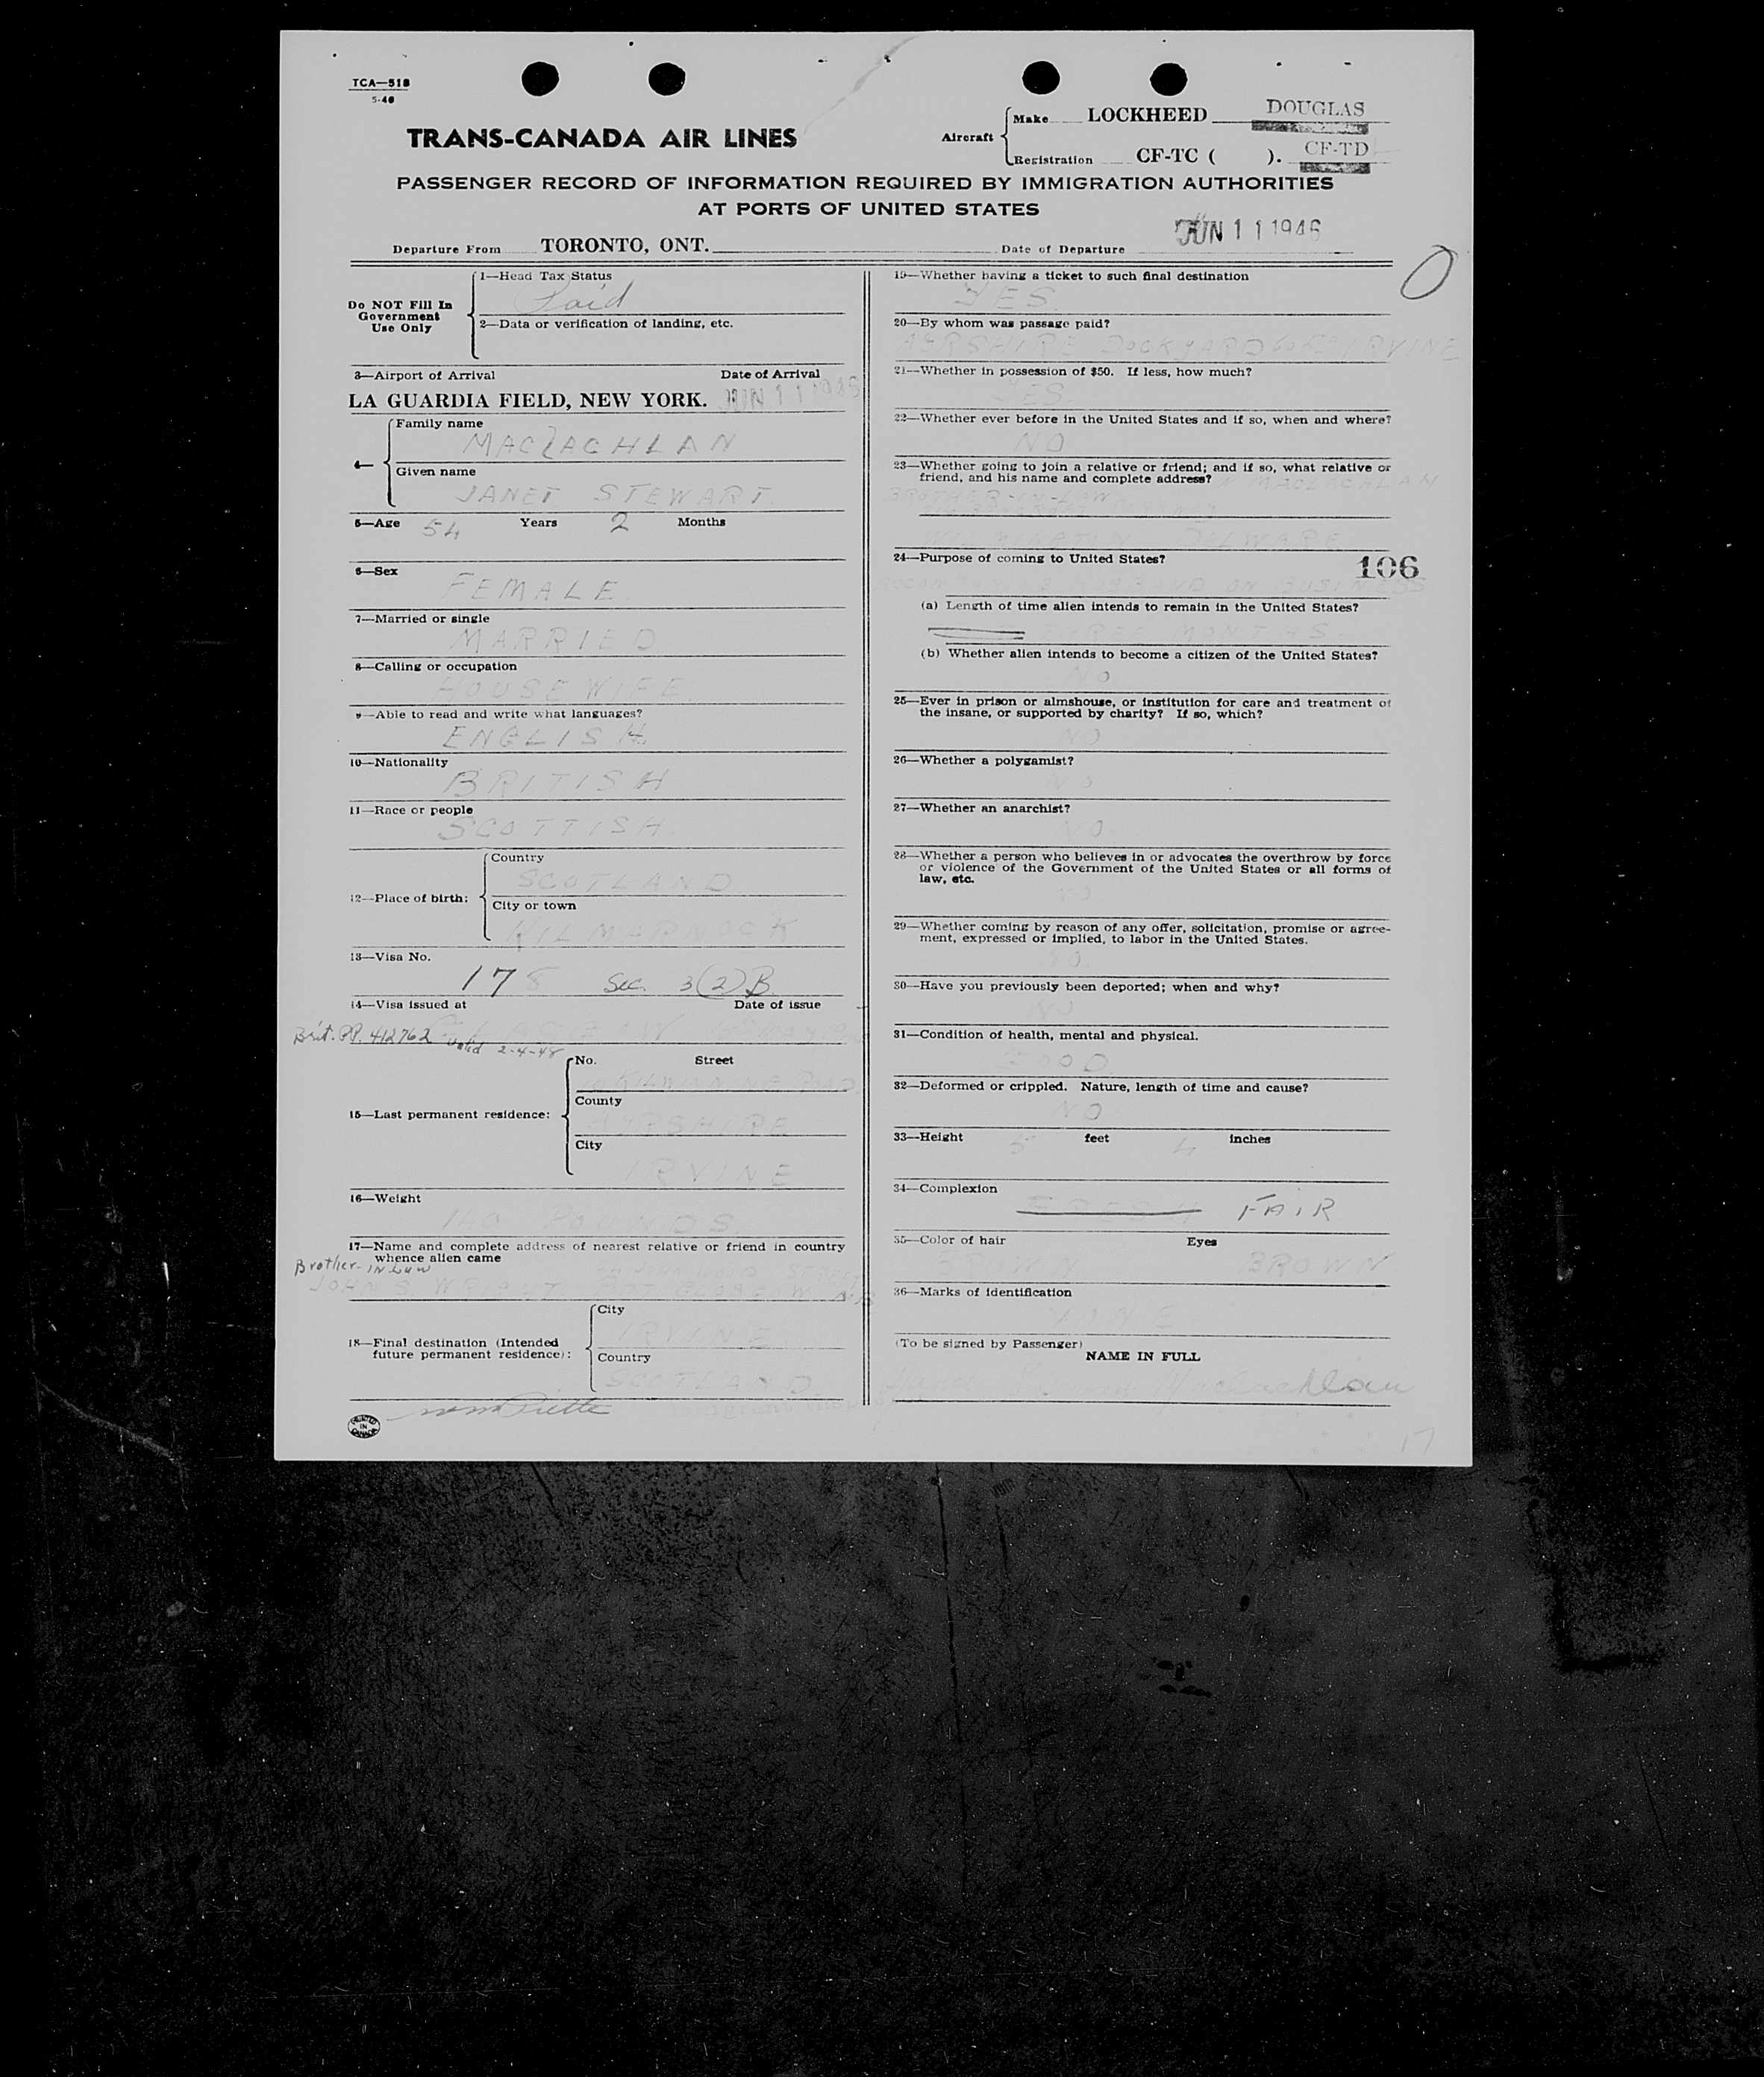 TCA—518
5-46
TRANS-CANADA AIR LINES
Aircraft
Make LOCKHEED DOUGLAS
Registration CF-TC ( ). CF-TD
PASSENGER RECORD OF INFORMATION REQUIRED BY IMMIGRATION AUTHORITIES
AT PORTS OF UNITED STATES
Departure From TORONTO, ONT. Date of Departure JUN 11 1946
Do NOT Fill In
Government
Use Only
1—Head Tax Status
Paid
2—Data or verification of landing, etc.
3—Airport of Arrival Date of Arrival
LA GUARDIA FIELD, NEW YORK. JUN 11 1946
4—
Family name
MACLACHLAN
Given name
JANET STEWART
5—Age 54 Years 2 Months
6—Sex
FEMALE
7—Married or single
MARRIED
8—Calling or occupation
HOUSEWIFE
9—Able to read and write what languages?
ENGLISH
10—Nationality
BRITISH
11—Race or people
SCOTTISH
12—Place of birth:
Country
SCOTLAND
City or town
KILMARNOCK
13—Visa No.
178 Sec. 3(2)B
14—Visa issued at Date of issue
GLASGOW
Brit. PP. 412762 valid 2-4-48
15—Last permanent residence:
No. Street
KILWINNING ROAD
County
AYRSHIRE
City
IRVINE
16—Weight
140 POUNDS
17—Name and complete address of nearest relative or friend in country
whence alien came
Brother-IN Law
JOHN S. WRIGHT GLASGOW
18—Final destination (Intended
future permanent residence):
City
IRVINE
Country
SCOTLAND
PRINTED
IN
CANADA
19—Whether having a ticket to such final destination
YES
20—By whom was passage paid?
AYRSHIRE DOCKYARD IRVINE
21—Whether in possession of $50. If less, how much?
YES
22—Whether ever before in the United States and if so, when and where?
NO
23—Whether going to join a relative or friend; and if so, what relative or
friend, and his name and complete address? MACLACHLAN
BROTHER-IN-LAW
DELWARE
24—Purpose of coming to United States?
106
ON BUSINESS
(a) Length of time alien intends to remain in the United States?
THREE MONTHS
(b) Whether alien intends to become a citizen of the United States?
NO
25—Ever in prison or almshouse, or institution for care and treatment of
the insane, or supported by charity? If so, which?
NO
26—Whether a polygamist?
NO
27—Whether an anarchist?
NO
28—Whether a person who believes in or advocates the overthrow by force
or violence of the Government of the United States or all forms of
law, etc.
NO
29—Whether coming by reason of any offer, solicitation, promise or agree-
ment, expressed or implied, to labor in the United States.
NO
30—Have you previously been deported; when and why?
NO
31—Condition of health, mental and physical.
GOOD
32—Deformed or crippled. Nature, length of time and cause?
NO
33—Height 5 feet 4 inches
34—Complexion
FRESH FAIR
35—Color of hair Eyes
BROWN BROWN
36—Marks of identification
NONE
(To be signed by Passenger)
NAME IN FULL
Maclachlan
17